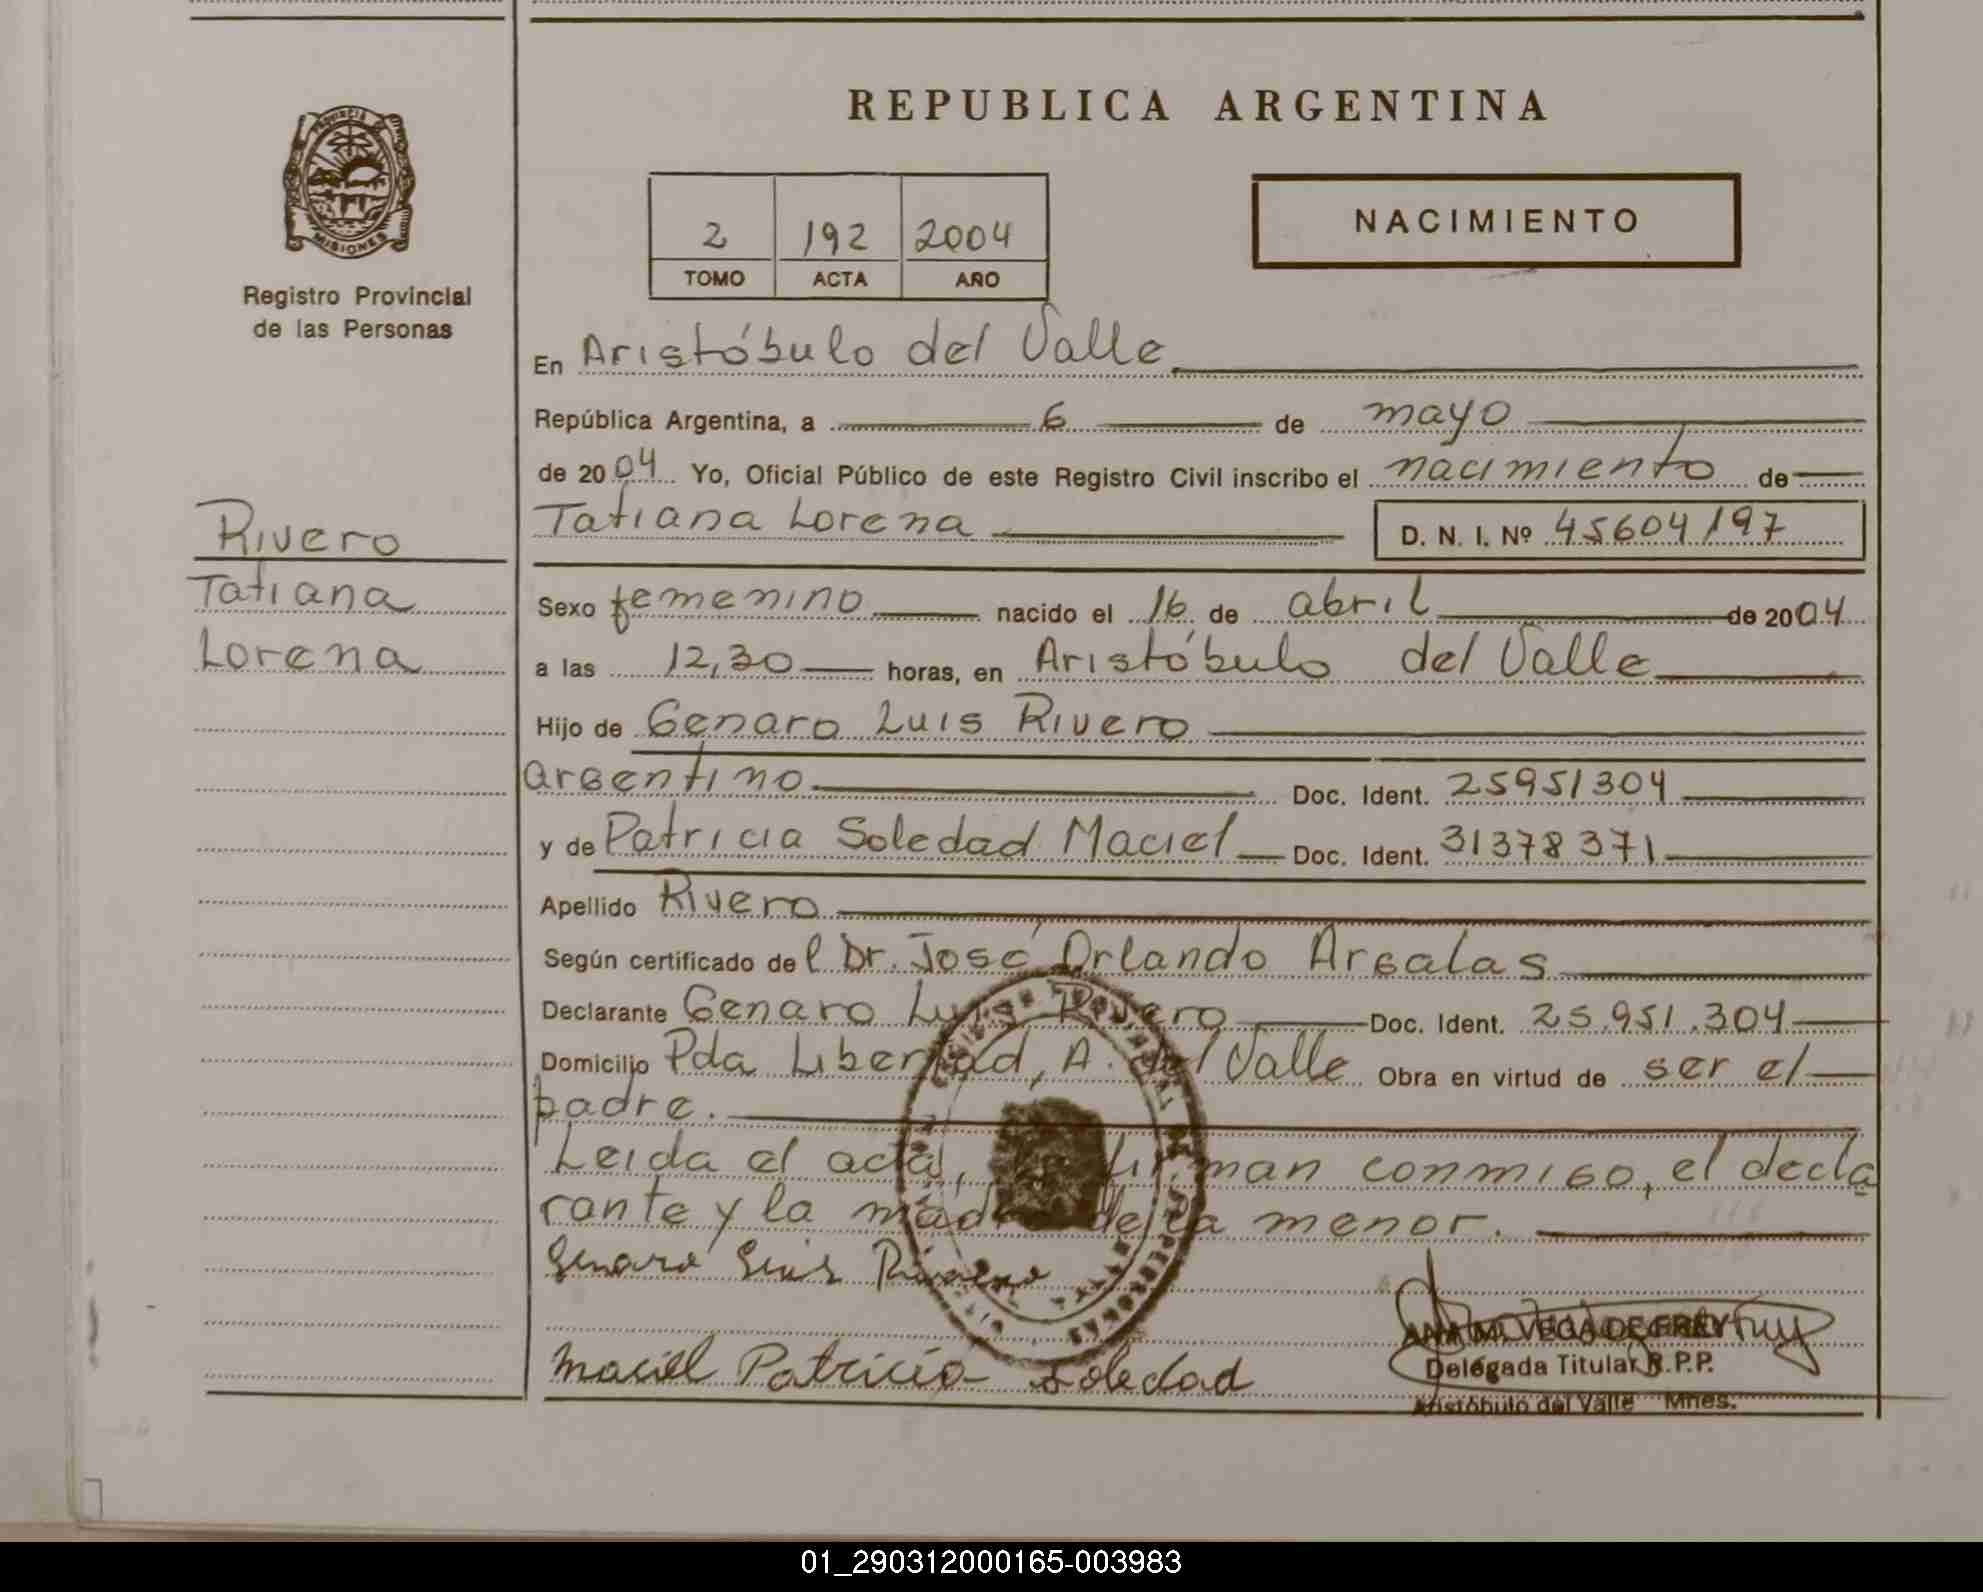 REPUBLICA ARGENTINA
PROVINCIA DE
MISIONES
Registro Provincial
de las Personas
2 192 2004
TOMO ACTA AÑO
NACIMIENTO
En Aristóbulo del Valle
República Argentina, a 6 de mayo
de 2004 Yo, Oficial Público de este Registro Civil inscribo el nacimiento de
Tatiana Lorena D. N. I. Nº 45604197
Rivero
Tatiana
Lorena
Sexo femenino nacido el 16 de abril de 2004
a las 12,30 horas, en Aristóbulo del Valle
Hijo de Genaro Luis Rivero
argentino Doc. Ident. 25951304
y de Patricia Soledad Maciel Doc. Ident. 31378371
Apellido Rivero
Según certificado del Dr. José Orlando Argalas
Declarante Genaro Luis Rivero Doc. Ident. 25.951.304
Domicilio Pda Libertad, A. del Valle Obra en virtud de ser el
padre.
Leida el acta, firman conmigo, el decla
rante y la madre de la menor.
Genaro Luis Rivero
Maciel Patricia Soledad
ANA M. VEGA DE FREY
Delegada Titular R.P.P.
Aristóbulo del Valle Mnes.
01_290312000165-003983